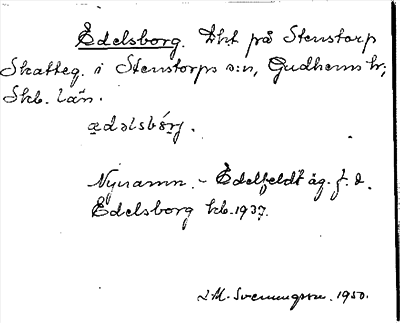 Edelsborg. Dht på Stenstorp
Skatteg. i Stenstorps s:n, Gudhems hr;
Skb. län.
ædəlsbórj.
Nynamn. - Edelfeldt äg. f. d.
Edelsborg kb. 1937.
I.M. Svenungsson. 1950.